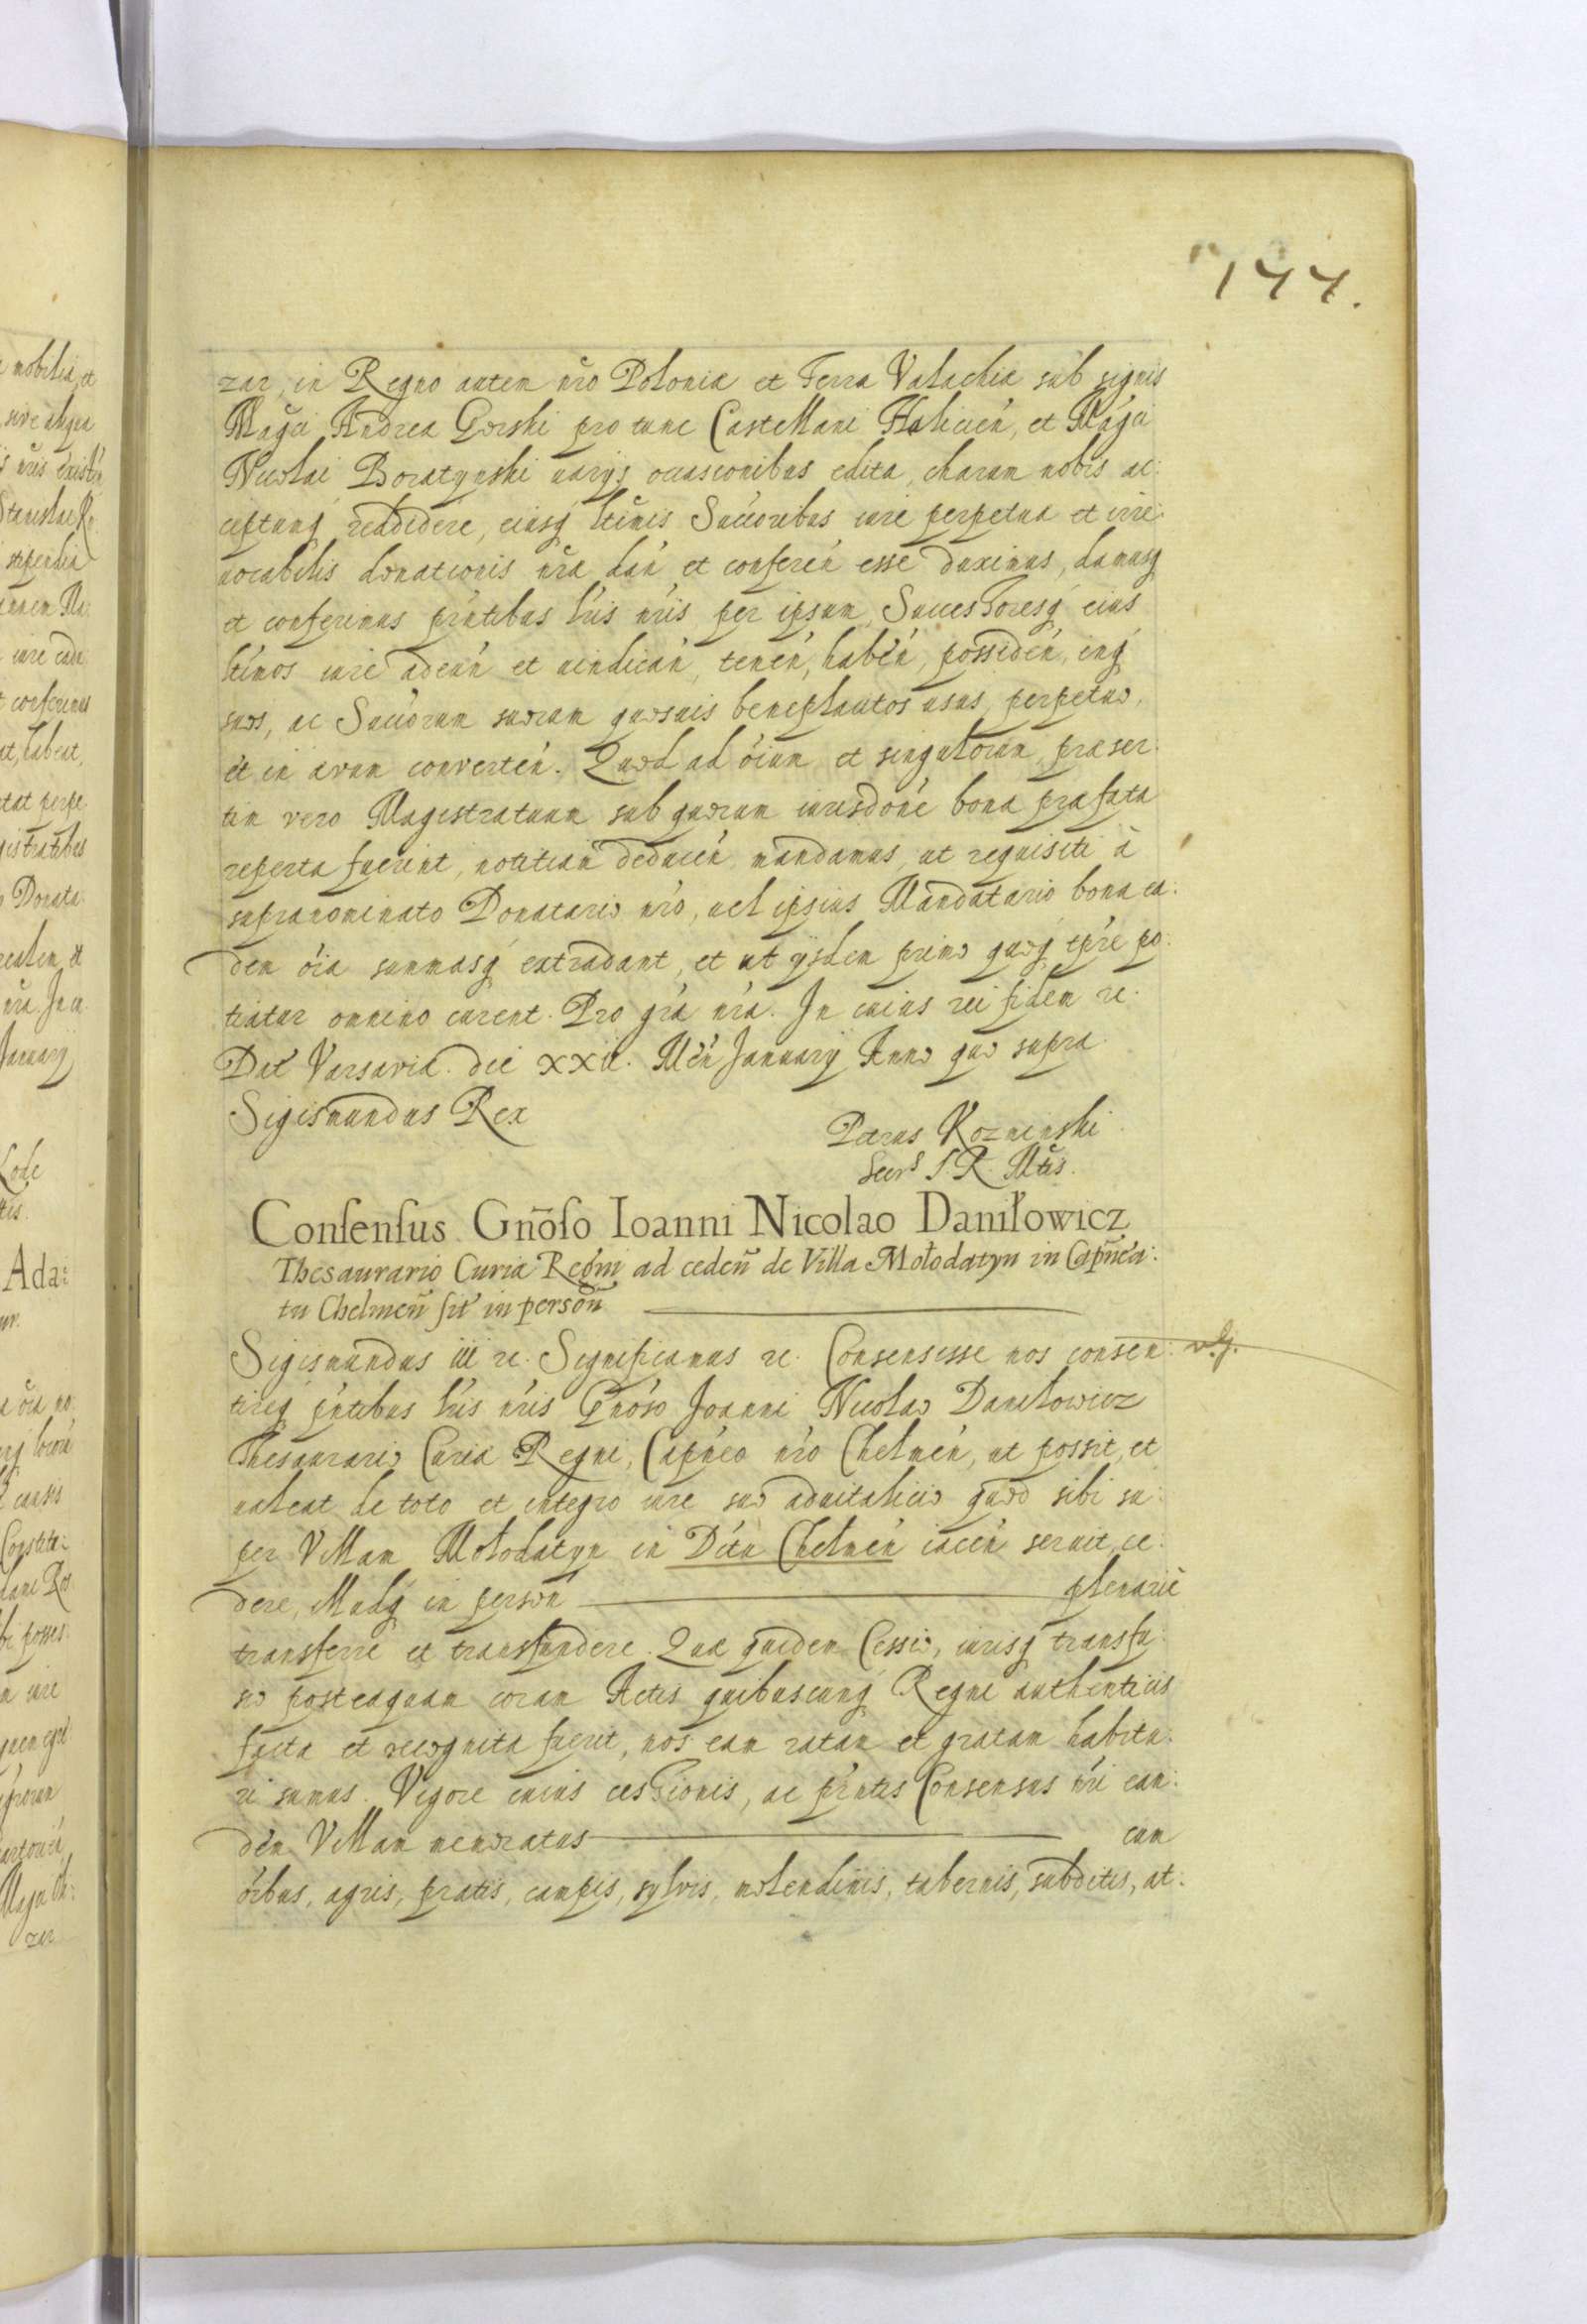 144.
zar, in Regno autem nro Polonia et Terra Valachia sub signis
Magci Andrea Gorski pro tunc Castellani Halicién, et Magci
Nicolai Boratynski uarijs occasionibus edita, charum nobis ac:
ceptumq́ reddidere, eiusq́ ltimis Succoribus iure perpetua et irre:
uocabilis donationis nra dan et conferen esse duximus, damusq́
et conferimus pr̃ntibus lris nris per ipsum Successoresq́ eius
ltimos iure adeun et uendican, tenen, haben, possiden, inq́
suos, ac Succorum suorum quosuis beneplacitos usus, perpetuo,
et in avum converten. Quod ad oium et singulorum, praeser:
tim vero Magistratuum sub quorum iurisdone bona prafata
reperta fuerint, notitiam deducen mandamus, ut requisiti à
supranominato Donatario nro, uel ipsius Mandatario bona ea:
dem oia summasq́ extradant, et ut ijsdem primo quoq́ tpre po:
tiatur omnino curent. Pro gra nra. In cuius rei fidem rc.
Dat Varsavia. die XXII. Men Januarij Anno quo supra.
Sigismundus Rex
Petrus Kozminski
Secrs S. R. Mtis.
Consensus Gnoso Ioanni Nicolao Daniłowicz
Thesaurario Curia Regni ad ceden de Villa Mołodatyn in Capnea:
tu Chelmen sit in person
Sigismundus III rc. Significamus rc. Consensisse nos consen:
tireq́ pntibus lris nris Gnoso Joanni Nicolao Daniłowicz
Thesaurario Curia Regni, Capneo nro Chelmen, ut possit, et
ualeat de toto et integro iure suo aduitalicio quod sibi su:
per Villam Mołodatyn in Dctu Chelmen iacen seruit, ce:
dere, illudq́ in person plenarie
transferre et transfundere. Qua quidem Cessio, iurisq́ transfu:
sio posteaquam coram Actis quibuscunq́ Regni authenticis
facta et recognita fuerit, nos eam ratam et gratam habitu:
ri sumus. Vigore cuius cessionis, ac pr̃ntis Consensus nri ean:
dem Villam memoratus cum
oibus, agris, pratis, campis, sylvis, molendinis, tabernis, subditis, at: